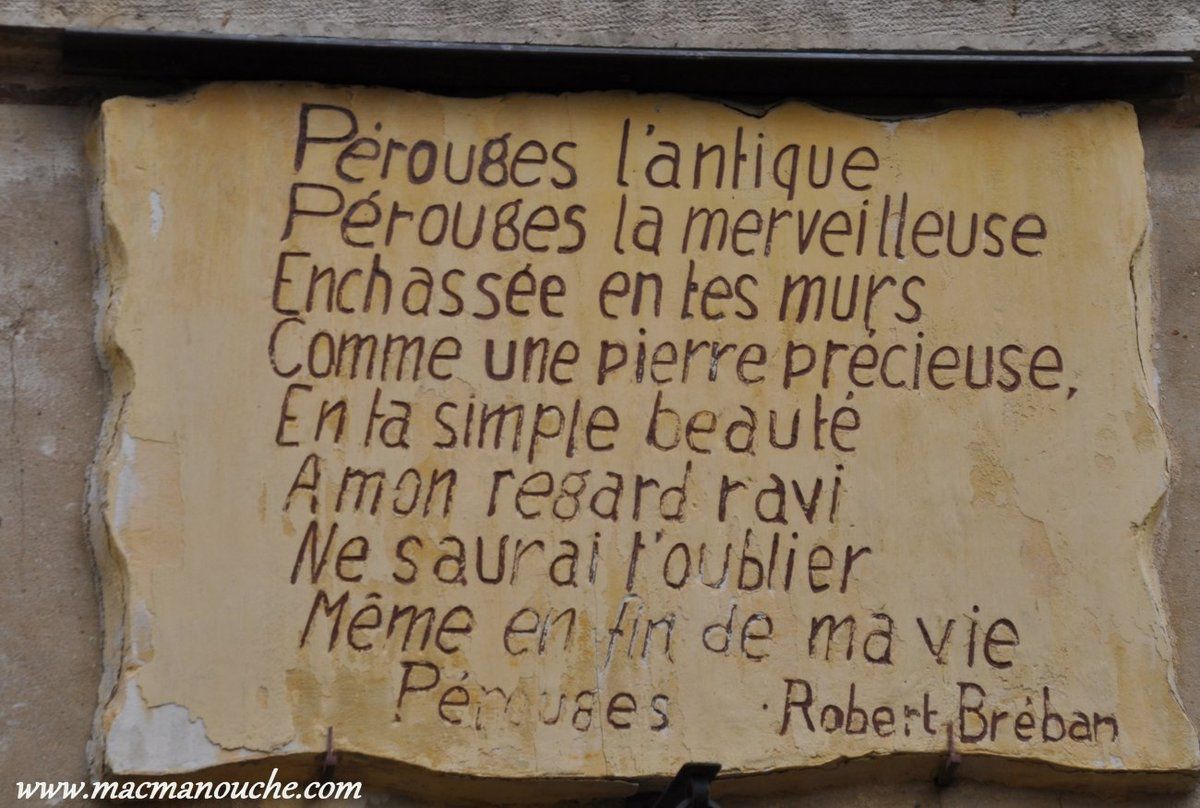 Pérouges l'antique
Pérouges la merveilleuse
Enchassée en tes murs
Comme une pierre précieuse,
En ta simple beauté
A mon regard ravi
Ne saurai t'oublier
Même en fin de ma vie
Pérouges · Robert Bréban
www.macmanouche.com